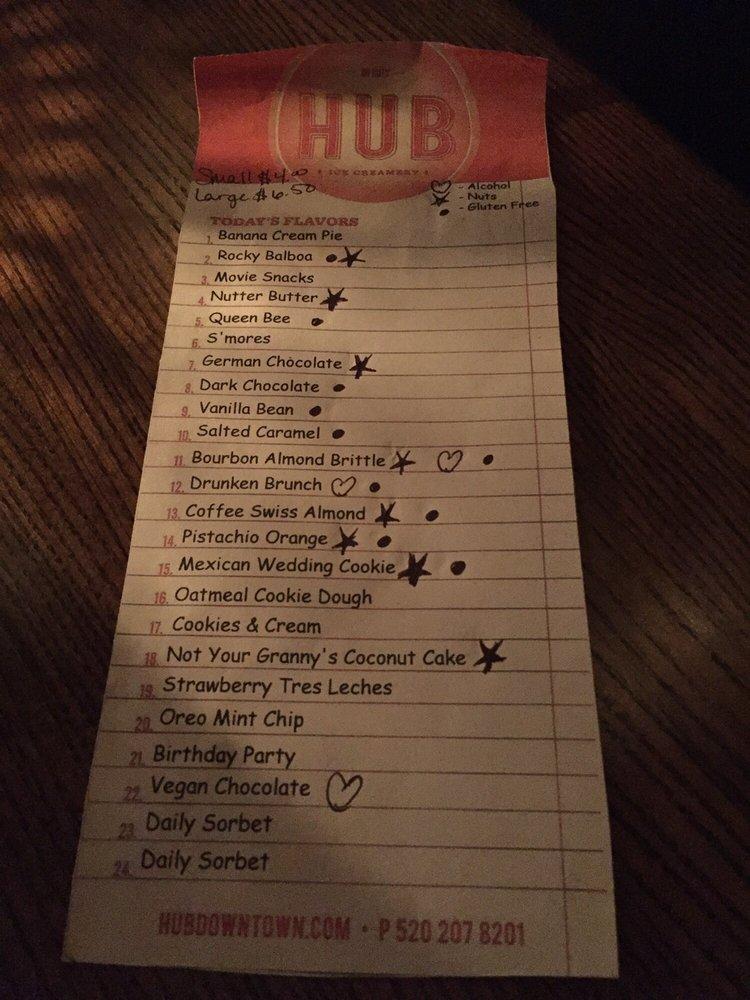 HUB
ICE CREAMERY
Small $4.00
Large $6.50
- Alcohol
- Nuts
- Gluten Free
TODAY'S FLAVORS
1. Banana Cream Pie
2. Rocky Balboa
3. Movie Snacks
4. Nutter Butter
5. Queen Bee
6. S'mores
7. German Chocolate
8. Dark Chocolate
9. Vanilla Bean
10. Salted Caramel
11. Bourbon Almond Brittle
12. Drunken Brunch
13. Coffee Swiss Almond
14. Pistachio Orange
15. Mexican Wedding Cookie
16. Oatmeal Cookie Dough
17. Cookies & Cream
18. Not Your Granny's Coconut Cake
19. Strawberry Tres Leches
20. Oreo Mint Chip
21. Birthday Party
22. Vegan Chocolate
23. Daily Sorbet
24. Daily Sorbet
HUBDOWNTOWN.COM • P 520 207 8201